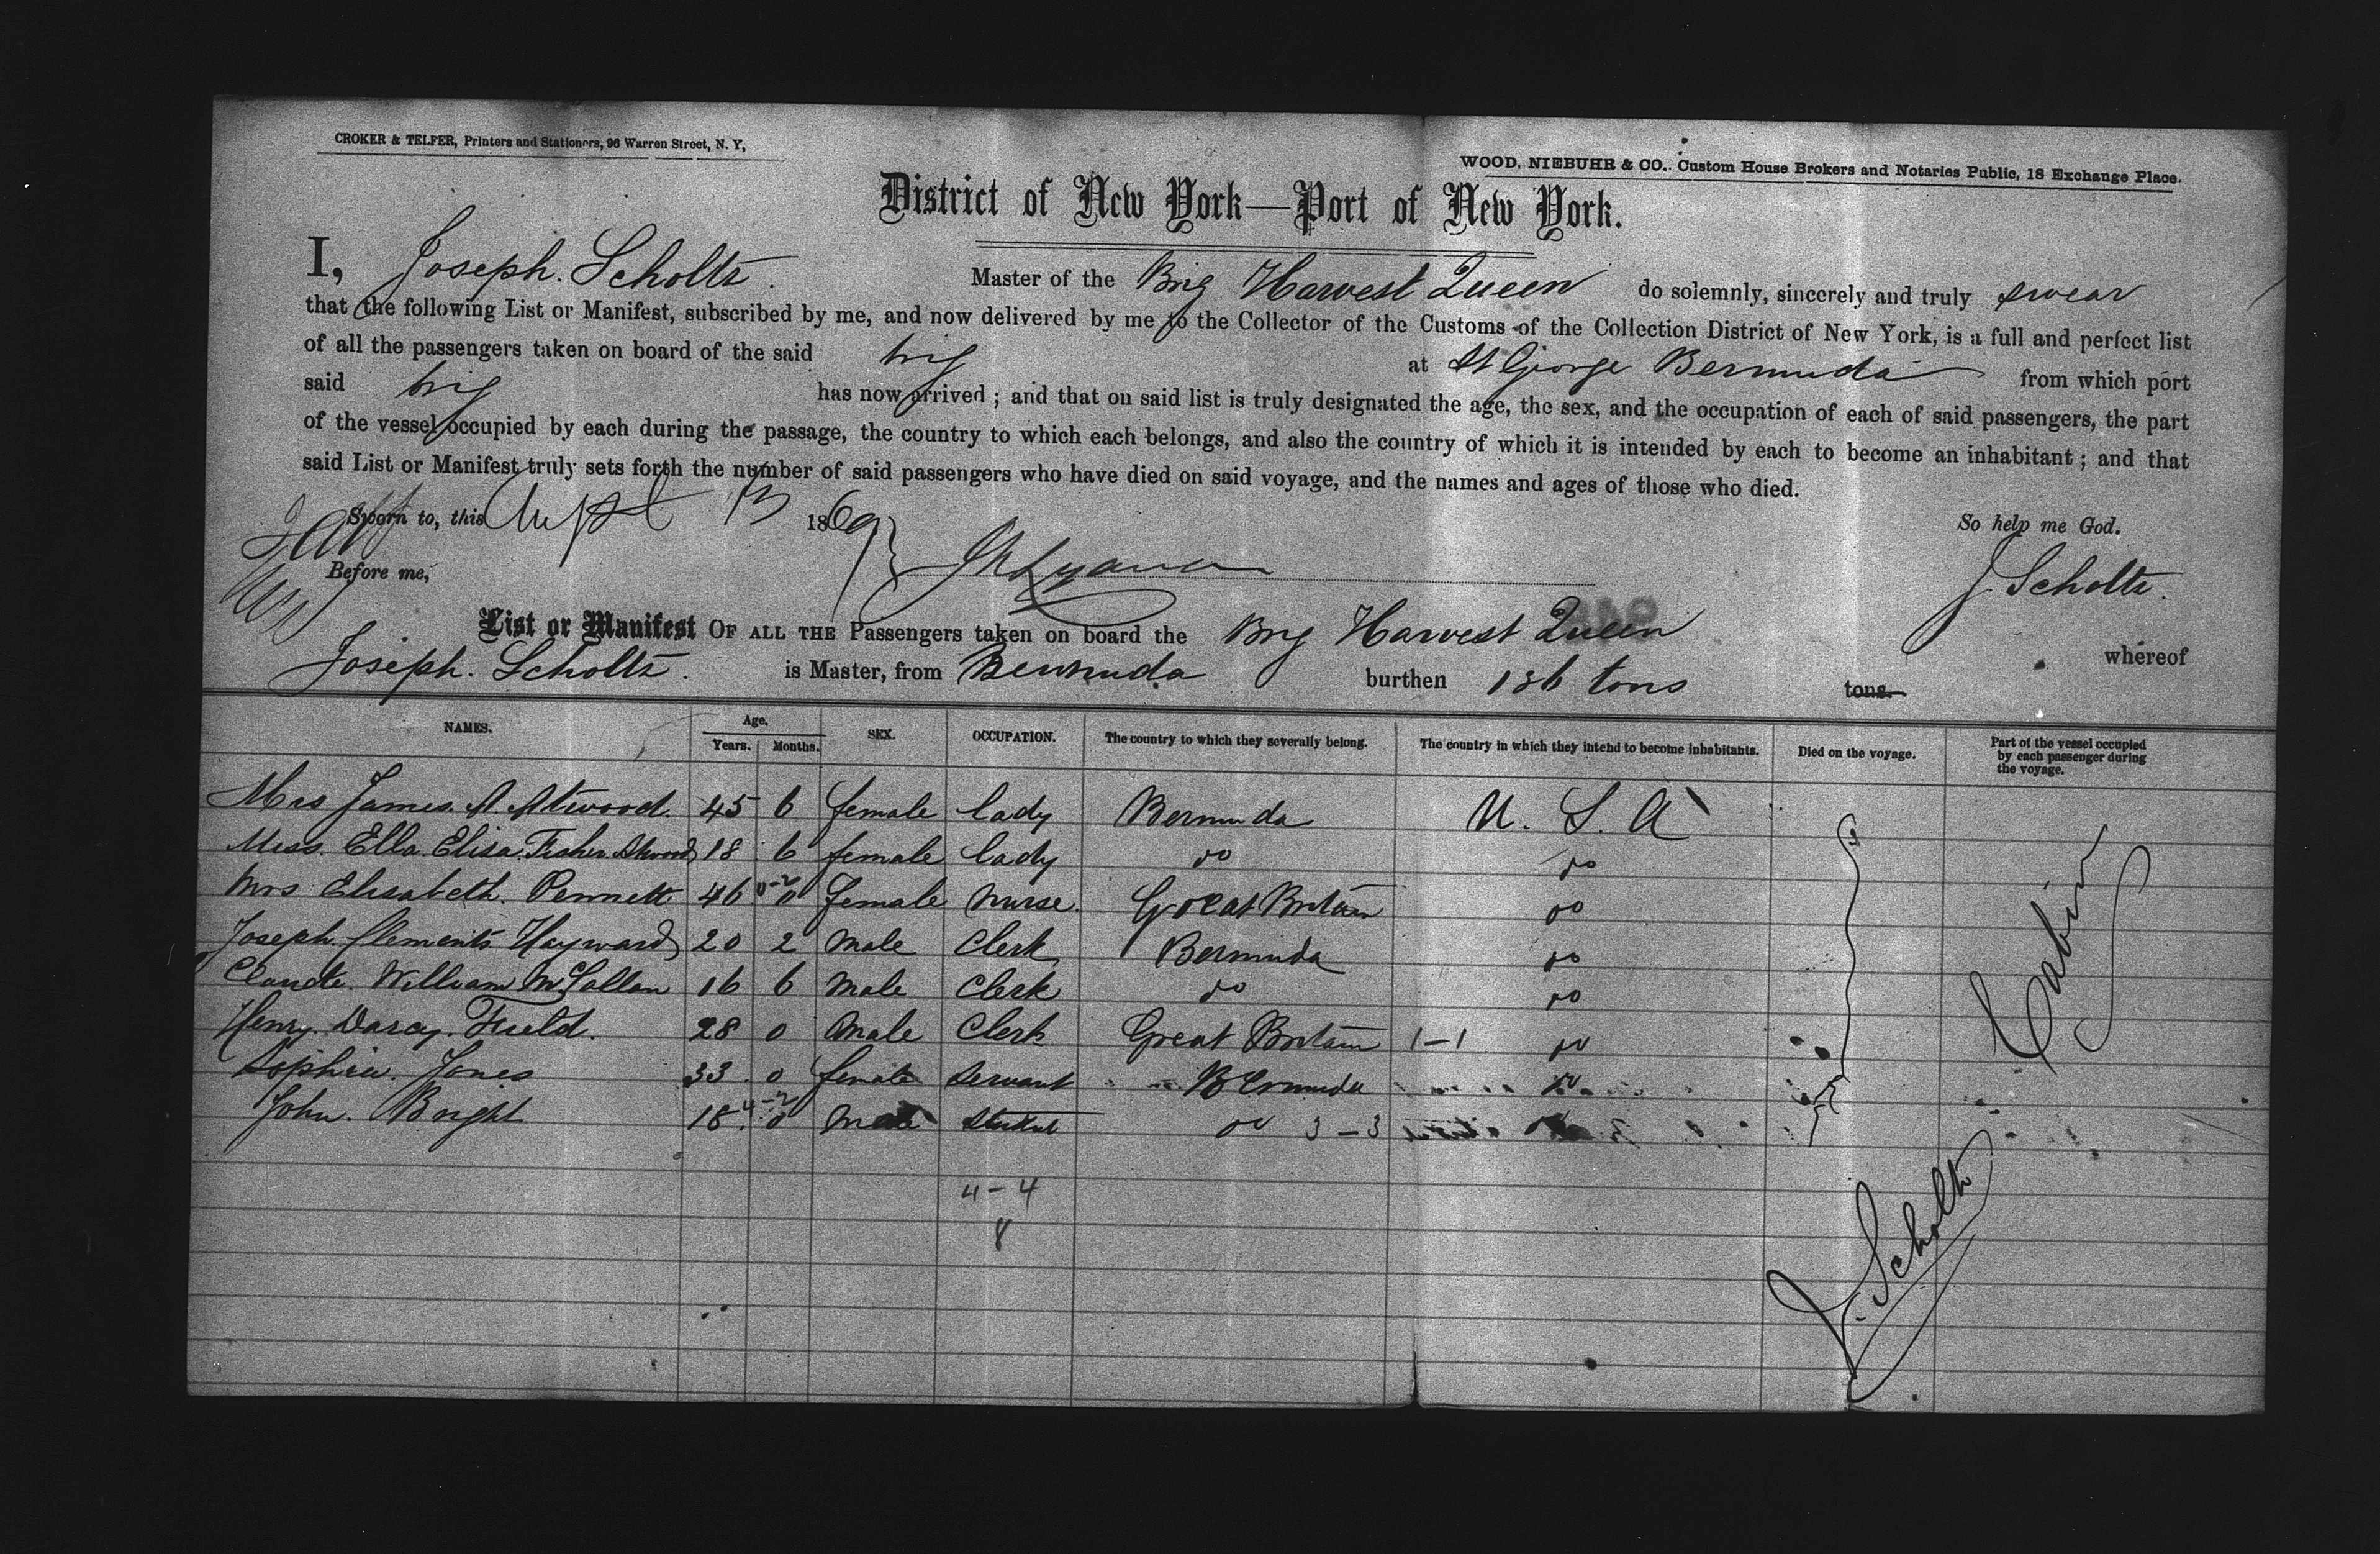 CROKER & TELFER, Printers and Stationers, 96 Warren Street, N. Y,
WOOD, NIEBUHR & CO., Custom House Brokers and Notaries Public, 18 Exchange Place.
District of New York—Port of New York.
I, Joseph. Scholtz. Master of the Brig Harvest Queen do solemnly, sincerely and truly swear
that the following List or Manifest, subscribed by me, and now delivered by me to the Collector of the Customs of the Collection District of New York, is a full and perfect list
of all the passengers taken on board of the said brig at St George Bermuda from which port
said brig has now arrived; and that on said list is truly designated the age, the sex, and the occupation of each of said passengers, the part
of the vessel occupied by each during the passage, the country to which each belongs, and also the country of which it is intended by each to become an inhabitant; and that
said List or Manifest truly sets forth the number of said passengers who have died on said voyage, and the names and ages of those who died.
Sworn to, this Sept 13 1869 So help me God.
Before me, J Scholtz.
List or Manifest OF ALL THE Passengers taken on board the Brig Harvest Queen whereof
Joseph. Scholtz. is Master, from Bermuda burthen 136 tons tons.
NAMES. Age. Years. Months. SEX. OCCUPATION. The country to which they severally belong. The country in which they intend to become inhabitants. Died on the voyage. Part of the vessel occupied by each passenger during the voyage.
Mrs James. A. Atwood. 45 6 female lady Bermuda U. S. A
Miss. Ella Elisa Fisher Atwood 18 6 female lady do do
Mrs Elisabeth. Pennett 46 0 female Nurse. Great Britain do
Joseph Clements Hayward 20 2 Male Clerk Bermuda do
Claude. William McCallan 16 6 Male Clerk do do
Henry. Darcy. Field. 28 0 Male Clerk Great Britain 1-1 do
Sophia. Jones 33 0 female Servant Bermuda do
John. Bright 18 0 Male do 3-3 do
Cabin
4-4
8
J. Scholtz